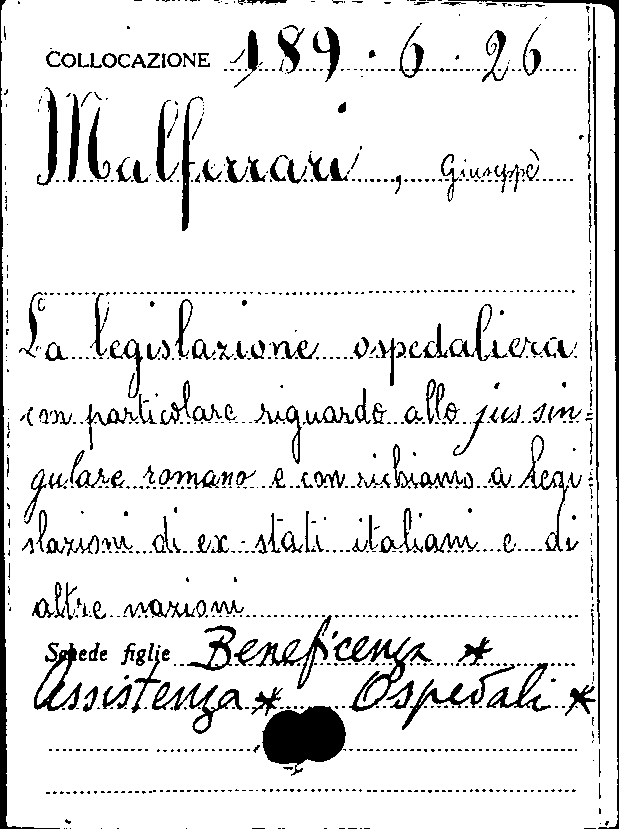 COLLOCAZIONE 189.6.26
Malferrari, Giuseppe
La legislazione ospedaliera
con particolare riguardo allo jus sin=
gulare romano e con richiamo a legi=
slazioni di ex-stati italiani e di
altre nazioni
Schede figlie Beneficenza *
Assistenza * Ospedali *